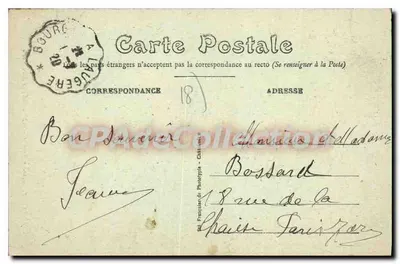 BOURGES A LAUGÈRE
Carte Postale
les pays étrangers n'acceptent pas la correspondance au recto (Se renseigner à la Poste)
CORRESPONDANCE
ADRESSE
18
Bon souvenir
Jeanne
Madame
Bossard
18 rue de la
Chaise Paris